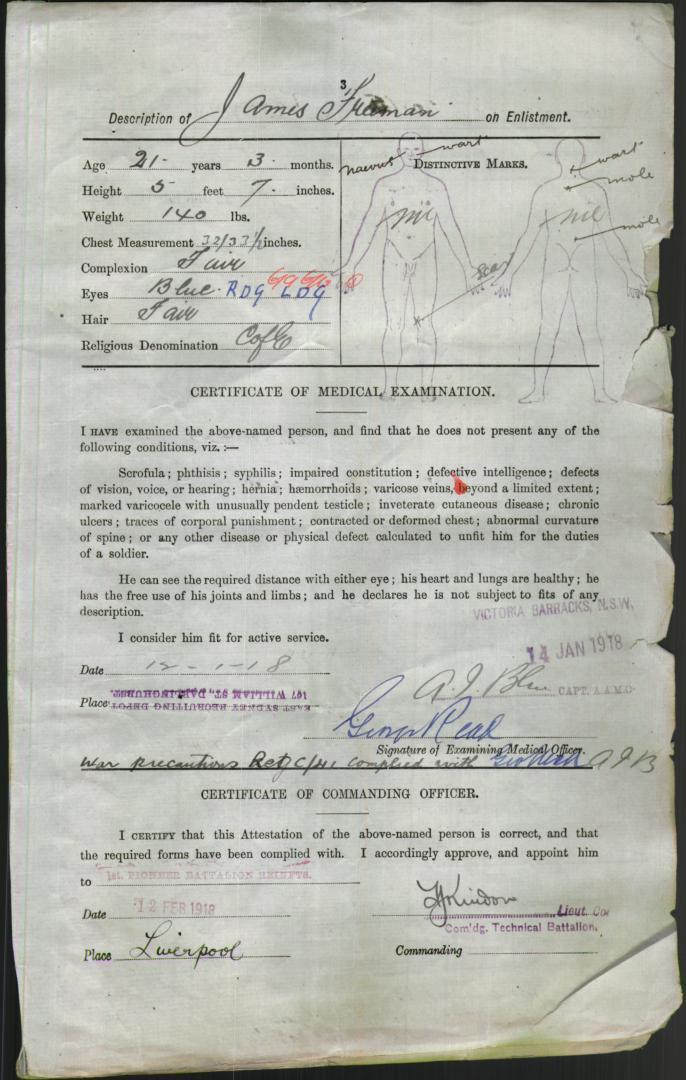 3
Description of James Freeman on Enlistment.
Age 21 years 3 months.
Height 5 feet 7 inches.
Weight 140 lbs.
Chest Measurement 32/33½ inches.
Complexion Fair
Eyes Blue. RD9 6/9 6/12 LD9
Hair Fair
Religious Denomination C of E
DISTINCTIVE MARKS.
naevus wart
nil
scar
wart
mole
nil
mole
CERTIFICATE OF MEDICAL EXAMINATION.
I HAVE examined the above-named person, and find that he does not present any of the
following conditions, viz. :—
Scrofula ; phthisis ; syphilis ; impaired constitution ; defective intelligence ; defects
of vision, voice, or hearing ; hernia ; hæmorrhoids ; varicose veins, beyond a limited extent ;
marked varicocele with unusually pendent testicle ; inveterate cutaneous disease ; chronic
ulcers ; traces of corporal punishment ; contracted or deformed chest ; abnormal curvature
of spine ; or any other disease or physical defect calculated to unfit him for the duties
of a soldier.
He can see the required distance with either eye ; his heart and lungs are healthy ; he
has the free use of his joints and limbs ; and he declares he is not subject to fits of any
description.
VICTORIA BARRACKS, N.S.W.
I consider him fit for active service.
14 JAN 1918
Date 12-1-18
CAPT. A.A.M.C.
Place EAST SYDNEY RECRUITING DEPOT
107 WILLIAM ST., DARLINGHURST.
George Read
Signature of Examining Medical Officer.
War Precautions Act complied with Geo Read A J B
CERTIFICATE OF COMMANDING OFFICER.
I CERTIFY that this Attestation of the above-named person is correct, and that
the required forms have been complied with. I accordingly approve, and appoint him
to 1st. PIONEER BATTALION REINFTS.
Date 12 FEB 1918
Lieut. Col
Com'dg. Technical Battalion.
Place Liverpool
Commanding